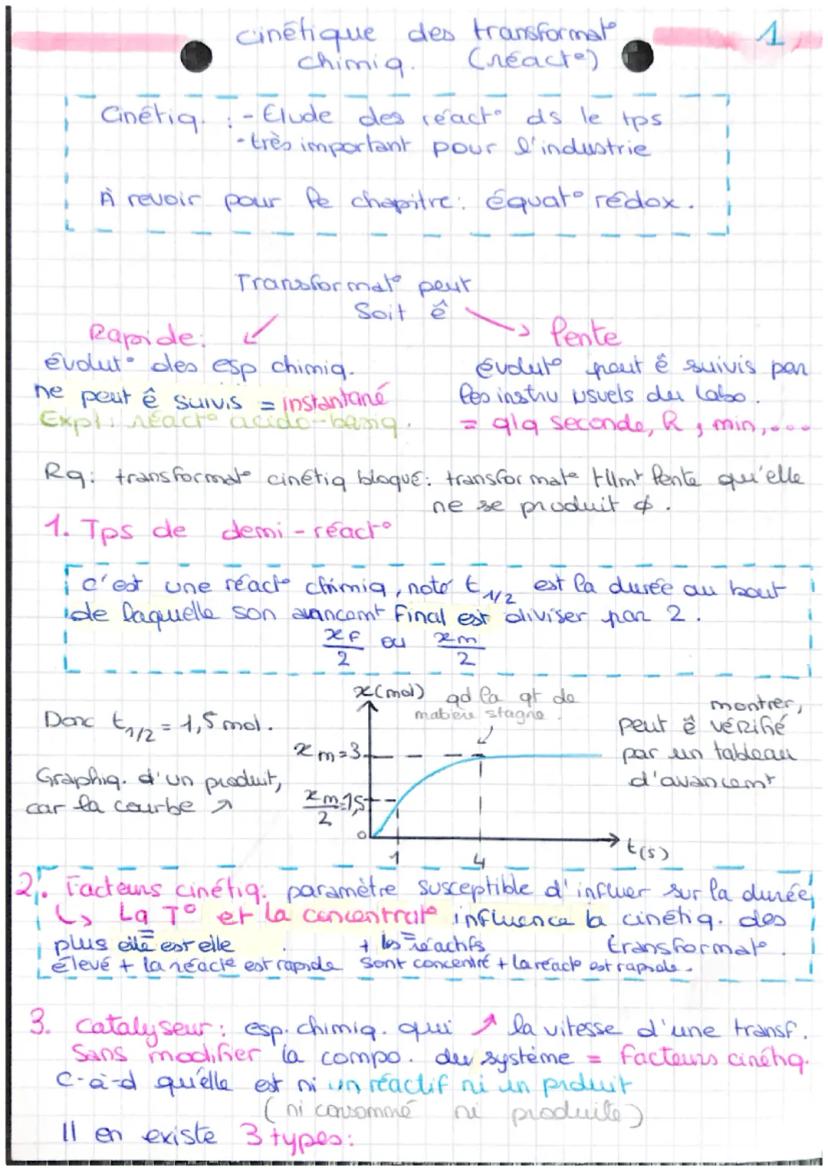 cinétique des transformat° 1
chimiq. (réact°)
Cinétiq. : - Etude des réact° ds le tps
- très important pour l'industrie
À revoir pour le chapitre: équat° rédox.
Transformat° peut
soit ê
Rapide:
évolut° des esp chimiq.
ne peut ê suivis = instantané
Expl: réact° acido-basiq.
Lente
évolut° peut ê suivis par
les instru usuels du labo.
= qlq seconde, h, min,...
Rq: transformat° cinétiq bloqué: transformat° tllmt lente qu'elle
ne se produit φ.
1. Tps de demi-réact°
c'est une réact° chimiq, noté t1/2 est la durée au bout
de laquelle son avancemt final est diviser par 2.
xF/2 ou xm/2
Donc t1/2 = 1,5 mol.
Graphiq. d'un produit,
car la courbe ↗
x(mol)
qd la qt de
matière stagne.
xm=3
xm/2=1,5
0
1
4
t(s)
montrer,
peut ê vérifié
par un tableau
d'avancemt
2. Facteurs cinétiq: paramètre susceptible d'influer sur la durée
↳ La T° et la concentrat° influence la cinétiq. des
transformat°.
plus elle est elle
élevé + la réact° est rapide
+ les réactifs
sont concentré + la réact° est rapide.
3. Catalyseur: esp. chimiq. qui ↗ la vitesse d'une transf.
Sans modifier la compo. du système = facteurs cinétiq.
C-à-d qu'elle est ni un réactif ni un produit
(ni consommé ni produite)
Il en existe 3 types: